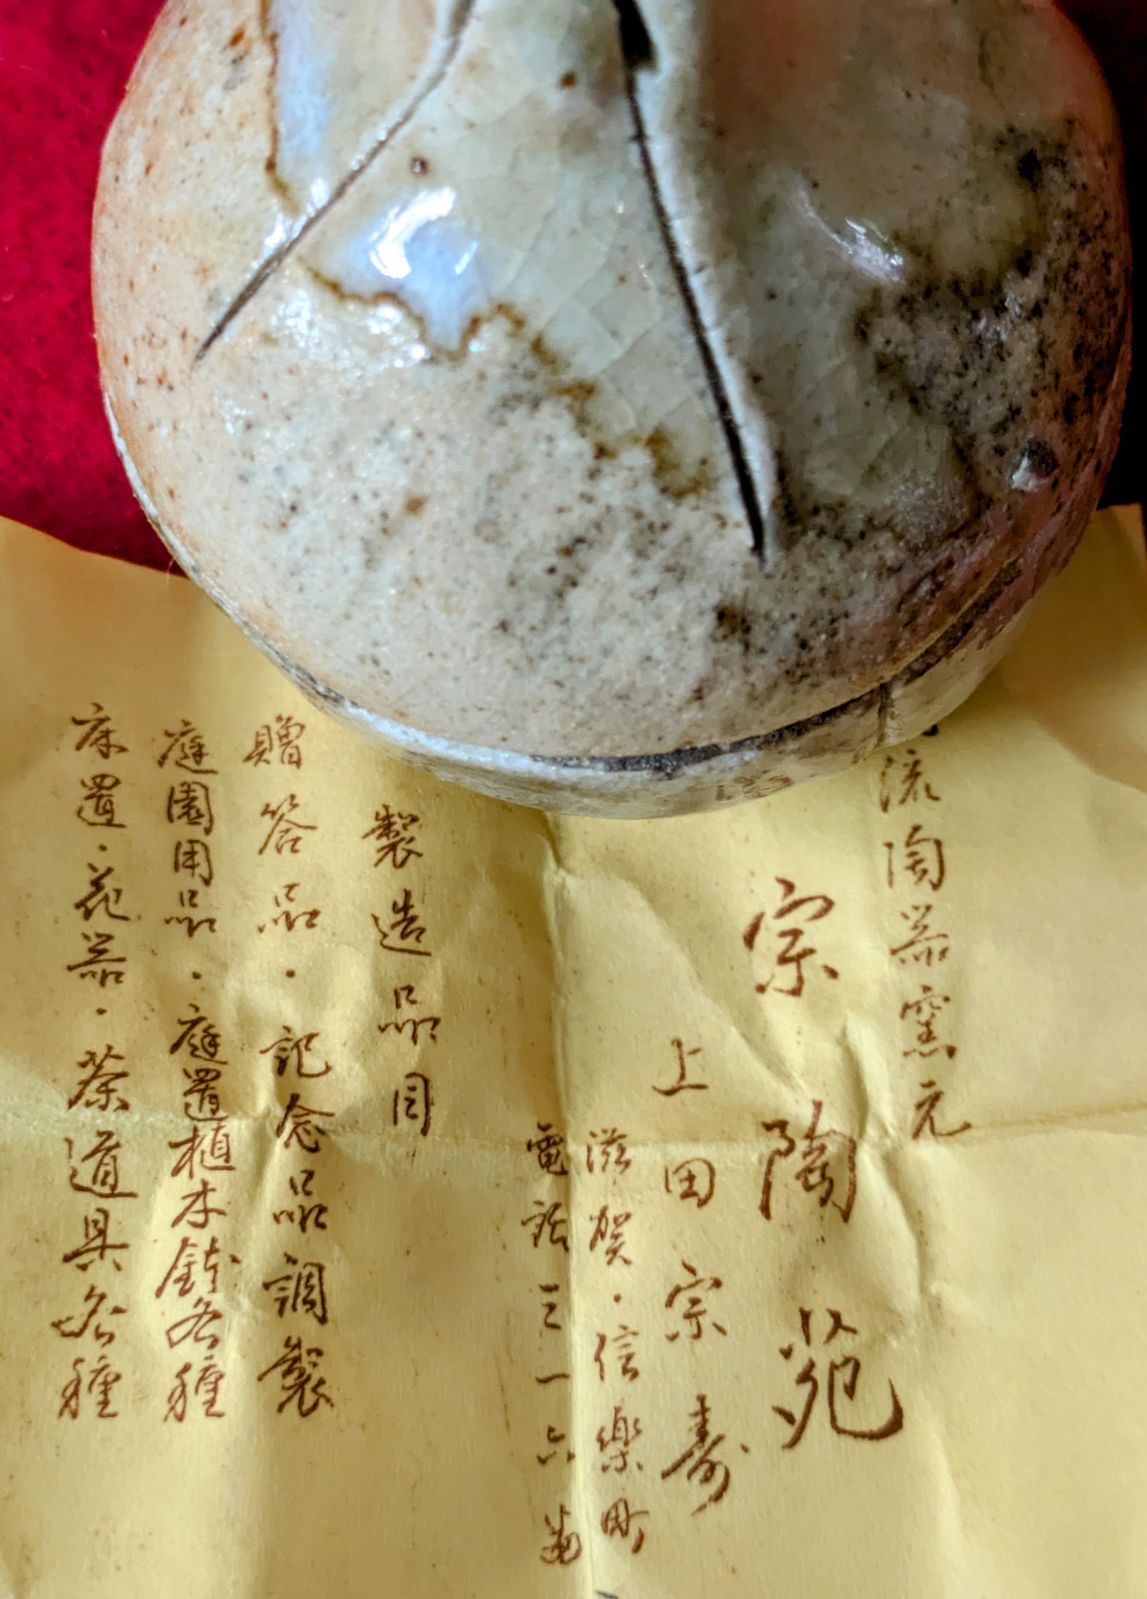 流陶器窯元
宗陶苑
上田宗寿
滋賀・信樂町
電話三一六番
製造品目
贈答品・記念品調製
庭園用品・庭置植木鉢各種
床置・花器・茶道具各種